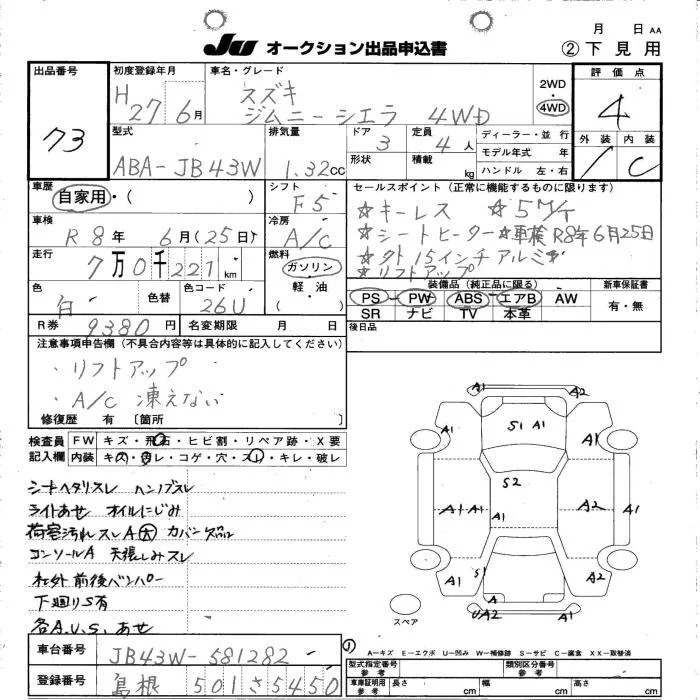 月 日 AA
JU オークション出品申込書 ② 下見用
出品番号 初度登録年月 車名・グレード 評価点
73
H 27年 6月
スズキ
ジムニーシエラ 4WD
2WD
4WD
4
外装 内装
C
型式 排気量 ドア 定員 ディーラー・並行
ABA-JB43W 1.32cc 3 4人
形状 積載 kg
モデル年式 年
ハンドル 左・右
車歴 シフト セールスポイント(正常に機能するものに限ります)
自家用・( ) F5
☆キーレス ☆5M/T
☆シートヒーター ☆車検R8年6月25日
☆15インチアルミ
☆リフトアップ
車検 冷房
R8年 6月(25日) A/C
走行 燃料
7万0千227km
ガソリン・
軽油
( )
色 色替 色コード
白 26U
装備品(純正品に限る) 新車保証書
PS PW ABS エアB AW
SR ナビ TV 本革
有・無
R券 9380円 名変期限 月 日
後日品
注意事項申告欄(不具合内容等は具体的に記入してください)
・リフトアップ
・A/C 凍えない
修復歴 有 [箇所 ]
検査員
記入欄
FW キズ・飛石・ヒビ割・リペア跡・X要
内装 コゲ・穴・スレ・キレ・破レ
シートヘタリスレ ハンドブスレ
ライトあせ オイルにじみ
荷室汚れスレA大
コンソールA 天張しみスレ
社外前後バンパー
下廻りS有
各A.U.S.あせ
A1 A2
A1 S1 A1 A1
S2
A1 A1 A2 A1
A1 S1 A2
A
UA2 A1
スペア
A-キズ E-エクボ U-凹み W-補修跡 S-サビ C-腐食 XX-取替済
車台番号 JB43W-581282
登録番号 島根 501さ5450
型式指定番号 参考 類別区分番号 参考
車庫証明用 参考 長さ cm 幅 cm 高さ cm